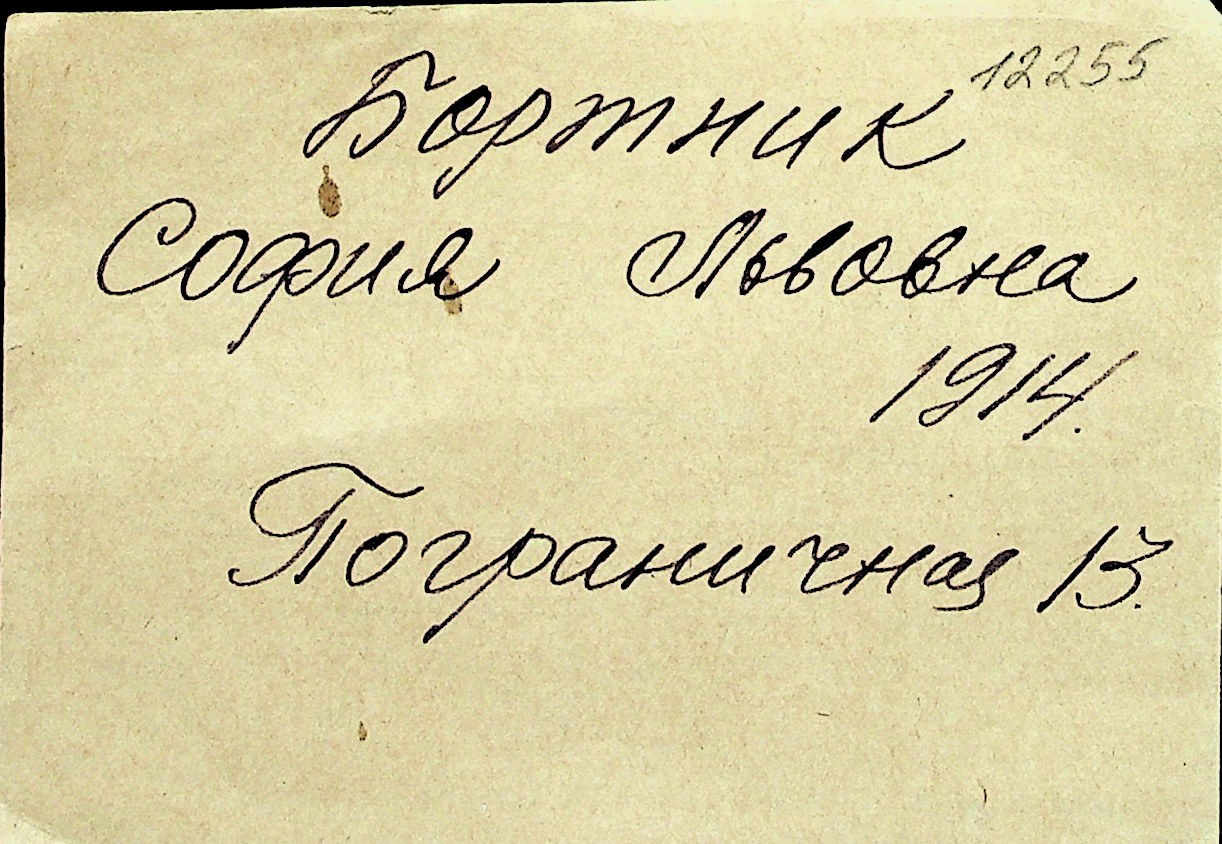 12255
Бортник
София Львовна
1914.
Пограничная 13.